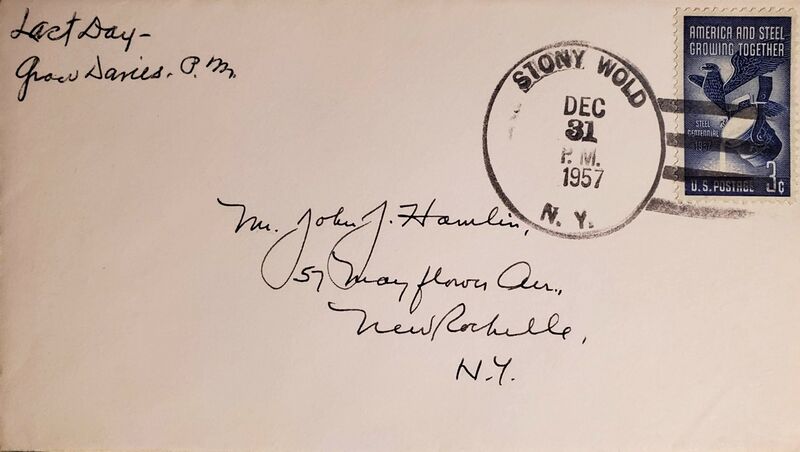 Last Day-
Grace Davies. P.M.
STONY WOLD
DEC
31
P.M.
1957
N.Y.
AMERICA AND STEEL
GROWING TOGETHER
STEEL
CENTENNIAL
1957
3c
U.S. POSTAGE
Mr. John J. Hamlin,
57 Mayflower Av.,
New Rochelle,
N.Y.